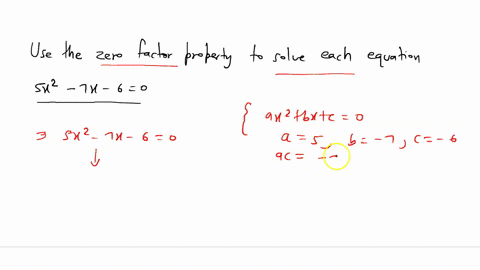 Use the zero factor property to solve each equation
5x² - 7x - 6 = 0
⇒ 5x² - 7x - 6 = 0
ax² + bx + c = 0
a = 5, b = -7, c = -6
ac = -